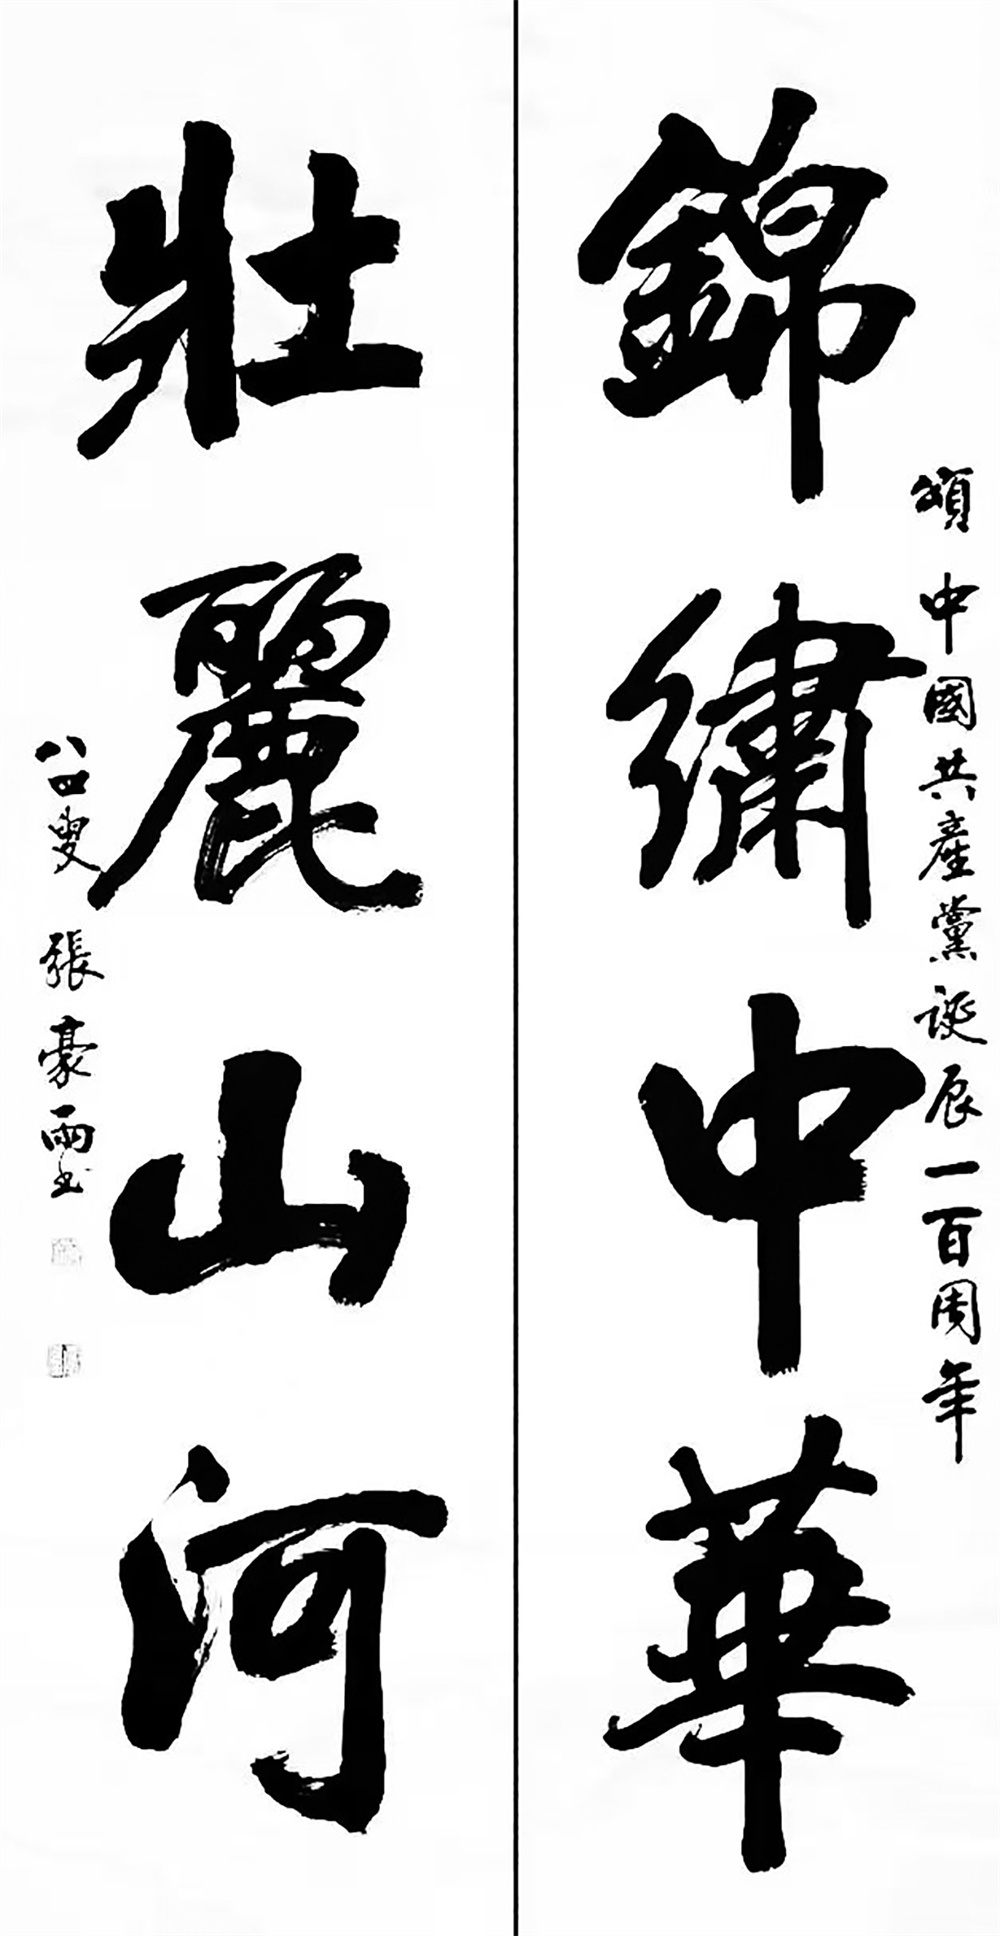 頌中國共産黨誕辰一百周年
錦繡中華
壯麗山河
八四叟張豪雨书